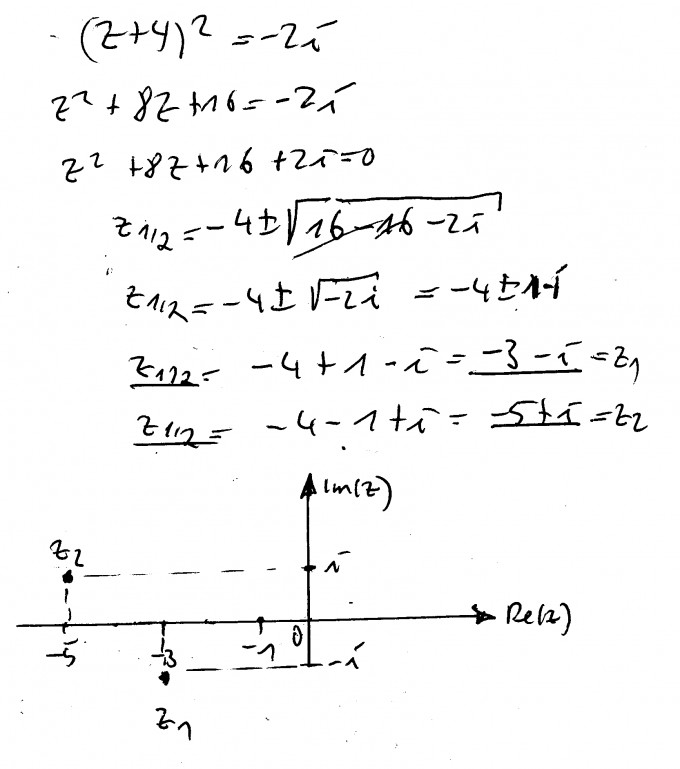 (z+4)² = -2i
z² + 8z + 16 = -2i
z² + 8z + 16 + 2i = 0
z₁/₂ = -4 ± √(16 - 16 - 2i)
z₁/₂ = -4 ± √(-2i) = -4 ± 1-i
z₁/₂ = -4 + 1 - i = -3 - i = z₁
z₁/₂ = -4 - 1 + i = -5 + i = z₂
Im(z)
z₂
i
Re(z)
-5 -3 -1 0
-i
z₁